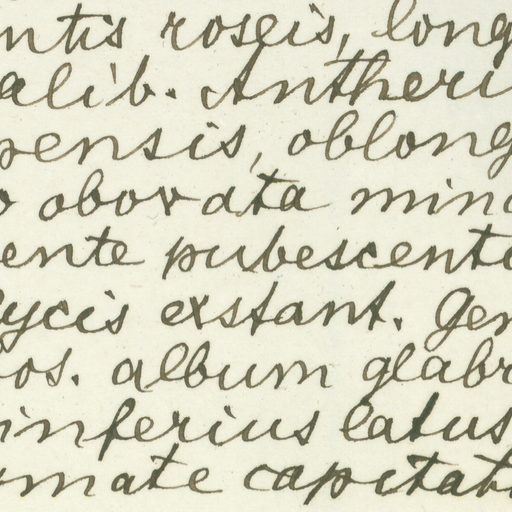 ntis roseis, long
alib. Antheri
pensis, oblong
o obovata mino
ente pubescente
lycis exstant. Gen
os. album glabr
inferius latus
mate capitat